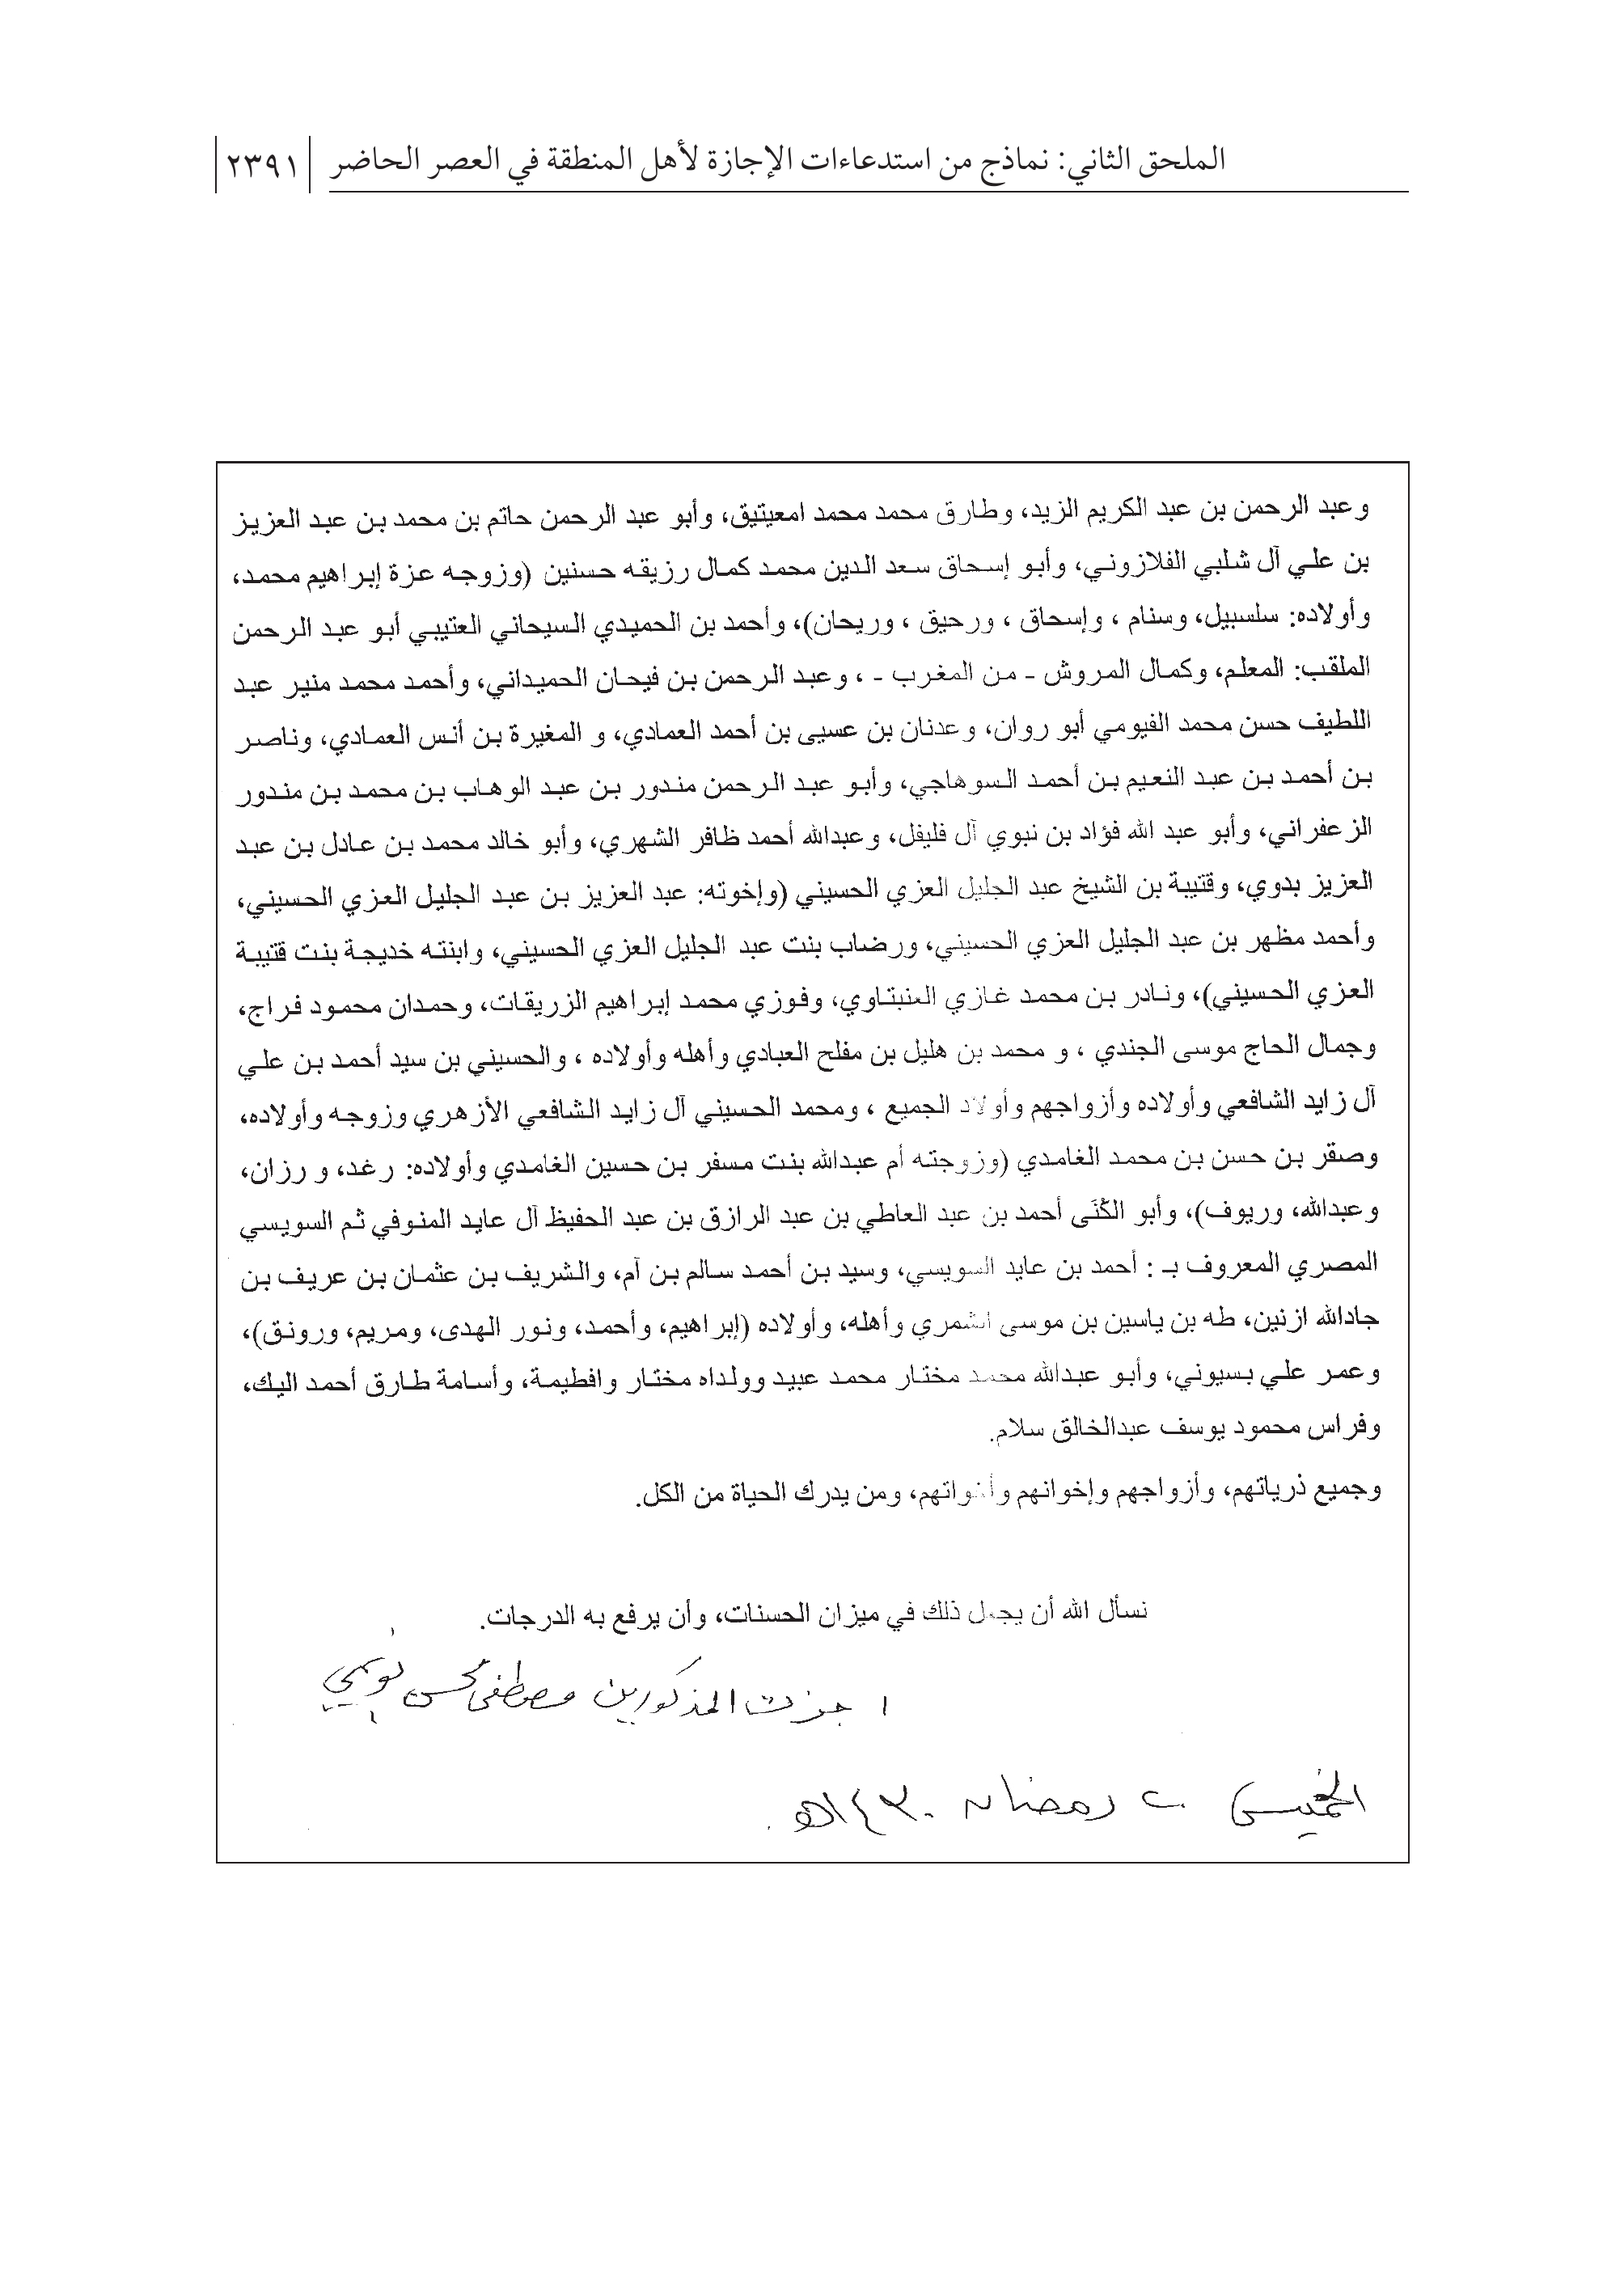 الملحق الثاني: نماذج من استدعاءات الإجازة لأهل المنطقة في العصر الحاضر ٢٣٩١
وعبد الرحمن بن عبد الكريم الزيد، وطارق محمد محمد امعيتيق، وأبو عبد الرحمن حاتم بن محمد بن عبد العزيز
بن علي آل شلبي الفلازوني، وأبو إسحاق سعد الدين محمد كمال رزيقه حسنين (وزوجه عزة إبراهيم محمد،
وأولاده: سلسبيل، وسنام ، وإسحاق ، ورحيق ، وريحان)، وأحمد بن الحميدي السيحاني العتيبي أبو عبد الرحمن
الملقب: المعلم، وكمال المروش - من المغرب - ، وعبد الرحمن بن فيحان الحميداني، وأحمد محمد منير عبد
اللطيف حسن محمد الفيومي أبو روان، وعدنان بن عسيى بن أحمد العمادي، و المغيرة بن أنس العمادي، وناصر
بن أحمد بن عبد النعيم بن أحمد السوهاجي، وأبو عبد الرحمن مندور بن عبد الوهاب بن محمد بن مندور
الزعفراني، وأبو عبد الله فؤاد بن نبوي آل فليفل، وعبدالله أحمد ظافر الشهري، وأبو خالد محمد بن عادل بن عبد
العزيز بدوي، وقتيبة بن الشيخ عبد الجليل العزي الحسيني (وإخوته: عبد العزيز بن عبد الجليل العزي الحسيني،
وأحمد مظهر بن عبد الجليل العزي الحسيني، ورضاب بنت عبد الجليل العزي الحسيني، وابنته خديجة بنت قتيبة
العزي الحسيني)، ونادر بن محمد غازي العنبتاوي، وفوزي محمد إبراهيم الزريقات، وحمدان محمود فراج،
وجمال الحاج موسى الجندي ، و محمد بن هليل بن مفلح العبادي وأهله وأولاده ، والحسيني بن سيد أحمد بن علي
آل زايد الشافعي وأولاده وأزواجهم وأولاد الجميع ، ومحمد الحسيني آل زايد الشافعي الأزهري وزوجه وأولاده،
وصقر بن حسن بن محمد الغامدي (وزوجته أم عبدالله بنت مسفر بن حسين الغامدي وأولاده: رغد، و رزان،
وعبدالله، وريوف)، وأبو الكُنَى أحمد بن عبد العاطي بن عبد الرازق بن عبد الحفيظ آل عايد المنوفي ثم السويسي
المصري المعروف بـ : أحمد بن عايد السويسي، وسيد بن أحمد سالم بن آم، والشريف بن عثمان بن عريف بن
جادالله ازنين، طه بن ياسين بن موسى الشمري وأهله، وأولاده (إبراهيم، وأحمد، ونور الهدى، ومريم، ورونق)،
وعمر علي بسيوني، وأبو عبدالله محمد مختار محمد عبيد وولداه مختار وافطيمة، وأسامة طارق أحمد اليك،
وفراس محمود يوسف عبدالخالق سلام.
وجميع ذرياتهم، وأزواجهم وإخوانهم وأخواتهم، ومن يدرك الحياة من الكل.
نسأل الله أن يجعل ذلك في ميزان الحسنات، وأن يرفع به الدرجات.
اجزت المذكورين مصطفى محسن
الخميس ٢٠ رمضان ١٤٣٠هـ